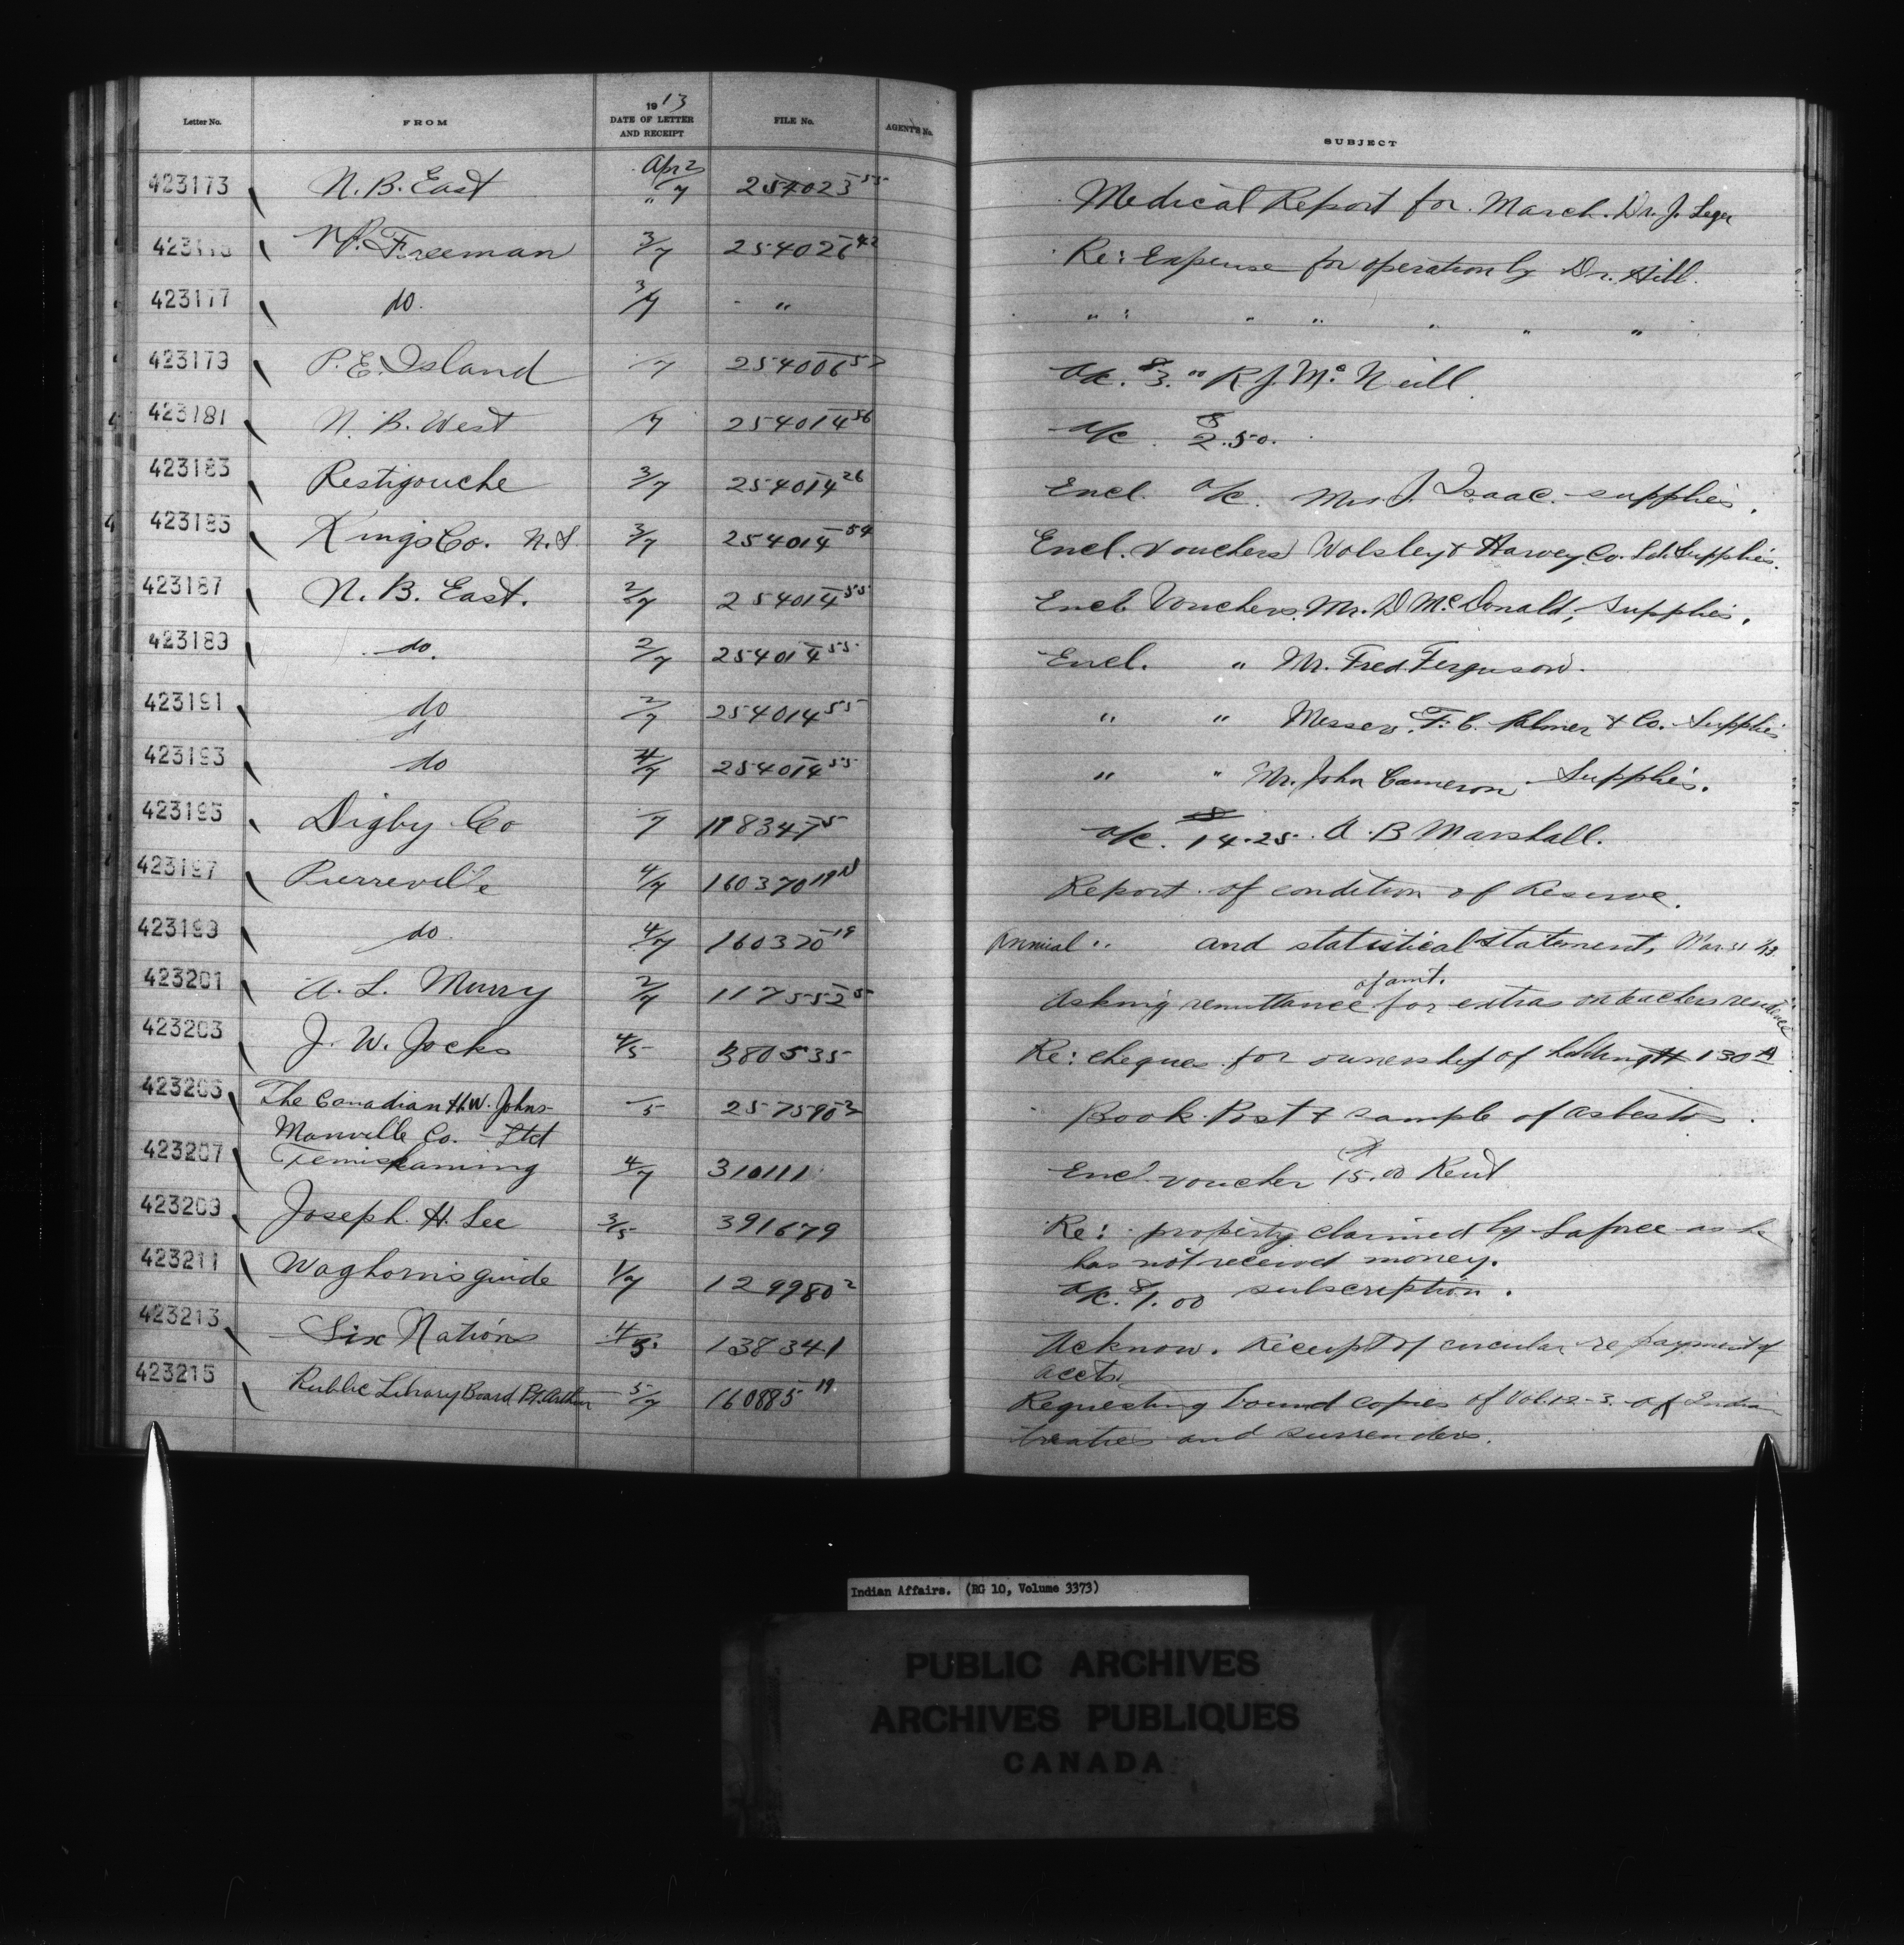 Letter No. FROM 1913 DATE OF LETTER AND RECEIPT FILE No. AGENT'S No. SUBJECT
423173 N. B. East Apr 2/7 " 254023 55 Medical Report for March. Dr. J. Leger
W. Freeman 3/7 254026 42 Re: Expense for operation by Dr. Hill.
423177 do. 3/7 " " : " " " " "
423179 P. E. Island /7 254006 57 a/c. $3.00 R J. McNeill
423181 N. B. West /7 254014 56 a/c. $2.50.
423183 Restigouche 3/7 254014 26 Encl. a/c. Mrs J. Isaac. supplies.
423185 Kings Co. N.S. 3/7 254014 54 Encl. vouchers Wolsley & Harvey Co. Ltd. Supplies.
423187 N. B. East. 2/7 254014 55 Encl. Vouchers. Mr. D McDonald, Supplies.
423189 do. 2/7 254014 55 Encl. " Mr. Fred. Ferguson.
423191 do 2/7 254014 55 " " Messrs. F. C. Palmer & Co. Supplies
423193 do 4/7 254014 55 " " Mr. John Cameron Supplies.
423195 Digby Co /7 198347 5 a/c. $14.25. A. B Marshall.
423197 Pierreville 4/7 160370 19 Report of condition of Reserve.
423199 do 4/7 160370 19 Annual " and statistical statement, Mar. 31/13.
423201 A. L. Murry 2/7 117555 Asking remittance of amt. for extras on teachers residence
423203 J. W. Jocks 4/5 380535 Re: cheques for ownership of 130 A
423205 The Canadian H.W. Johns- /5 257590 2 Book Post & sample of asbestos.
Manville Co. Ltd
423207 Temiskaming 4/7 310111 Encl. voucher $15.00 Rent
423209 Joseph. H. Lee 3/5 391679 Re: property claimed by Lafree as he
has not received money.
423211 Waghorn's guide 1/7 129980 2 a/c. $1.00 subscription.
423213 Six Nations 4/5 138341 Acknow. Receipt of circular re payment of
accts.
423215 Public Library Board Pt. Arthur 5/7 160885 19 Requesting bound copies of Vol. 12-3. of Indian
treaties and surrenders.
Indian Affairs. (RG 10, Volume 3373)
PUBLIC ARCHIVES
ARCHIVES PUBLIQUES
CANADA